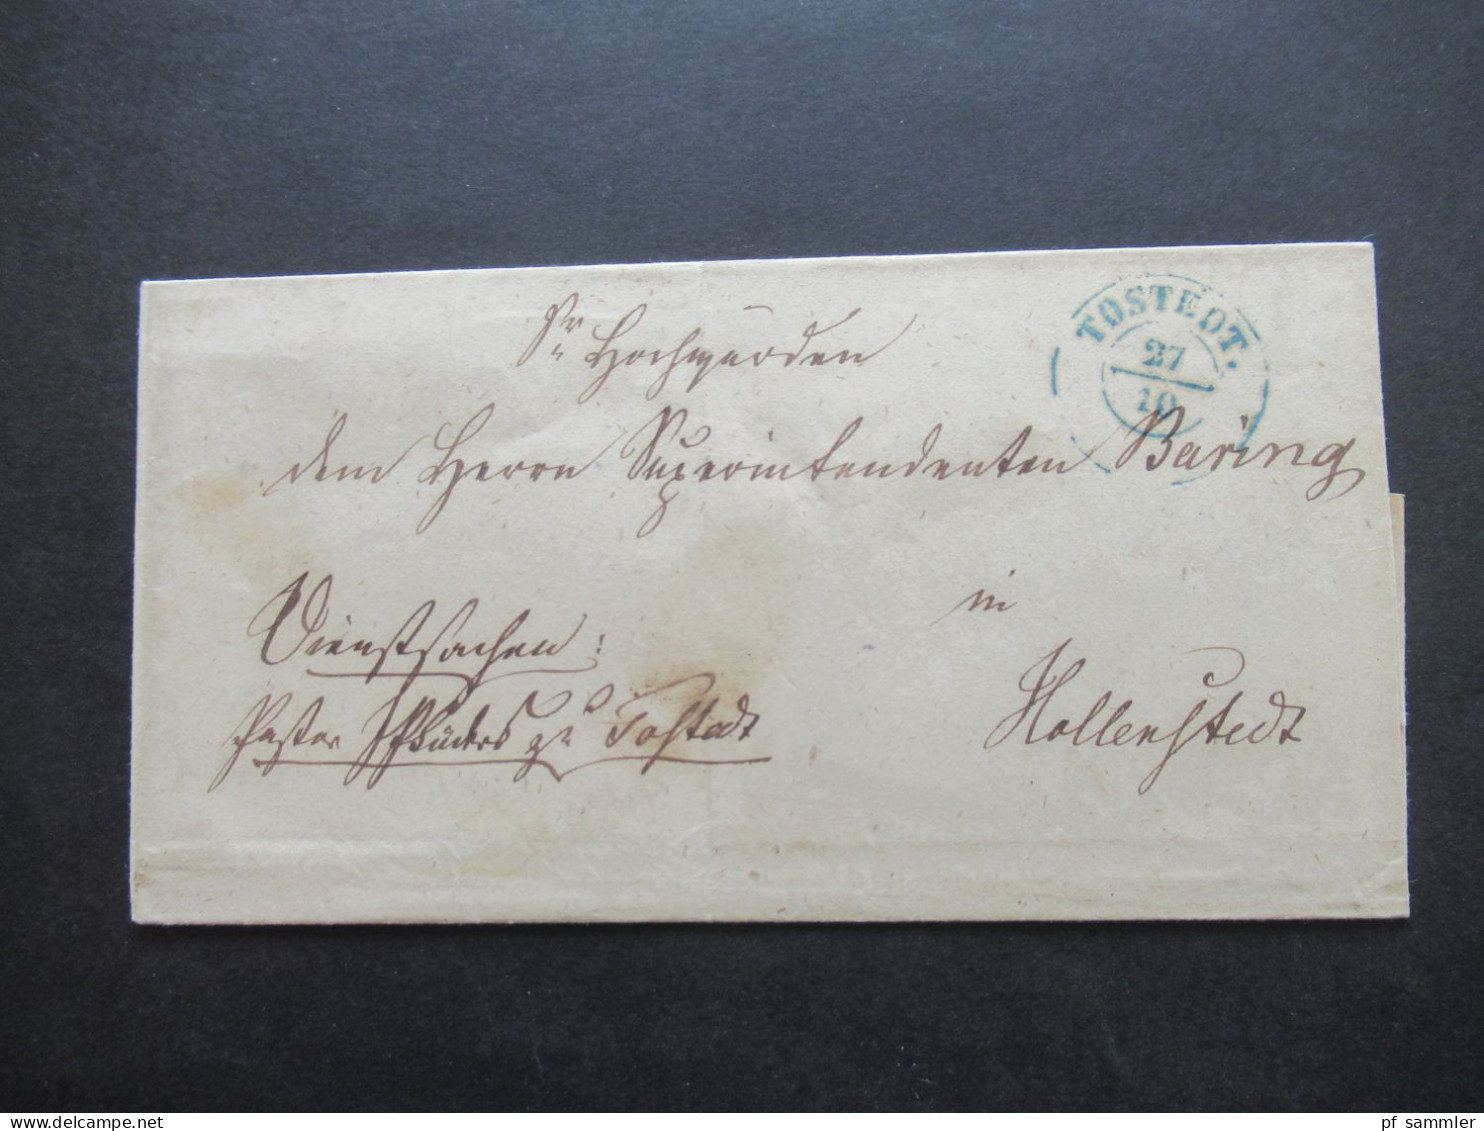 TOSTEDT.
27
10
Sr Hochwürden
dem Herrn Superintendenten Baring
in
Hollenstedt
Dienstsachen:
Pastor zu Tostedt
pf sammler
www.delcampe.net